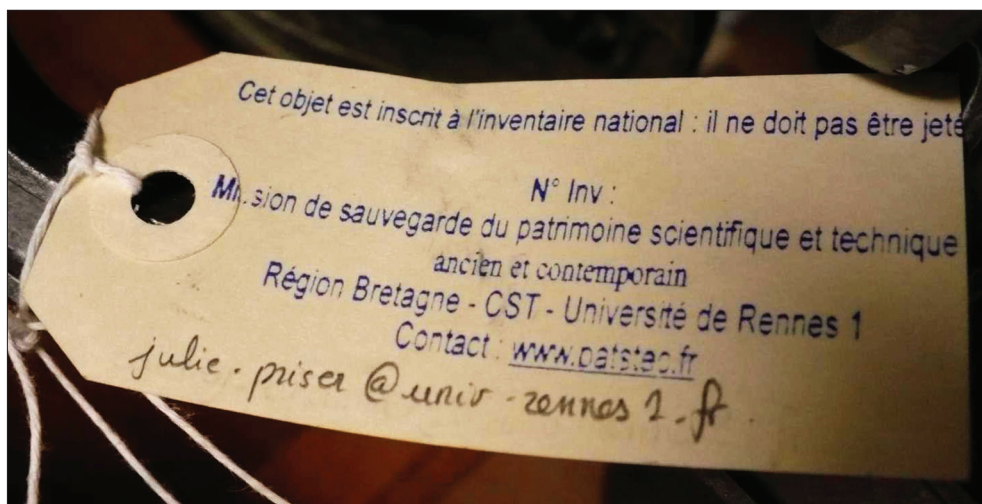 Cet objet est inscrit à l'inventaire national : il ne doit pas être jeté
N° Inv :
Mission de sauvegarde du patrimoine scientifique et technique
ancien et contemporain
Région Bretagne - CST - Université de Rennes 1
Contact : www.patstec.fr
julie.priser@univ-rennes1.fr